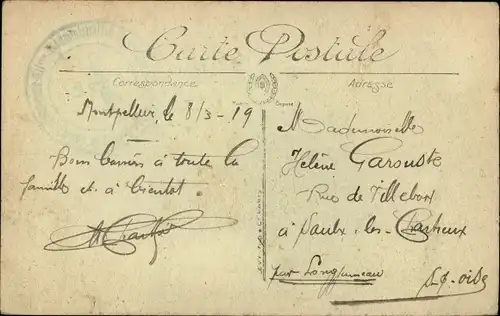 Carte Postale
Correspondance
Adresse
Montpellier, le 8/3-19
Bons baisers à toute la
famille et à bientôt
Mademoiselle
Hélène Garouste
Rue de Villebon
à Saulx-les-Chartreux
par Longjumeau
S-&-Oise